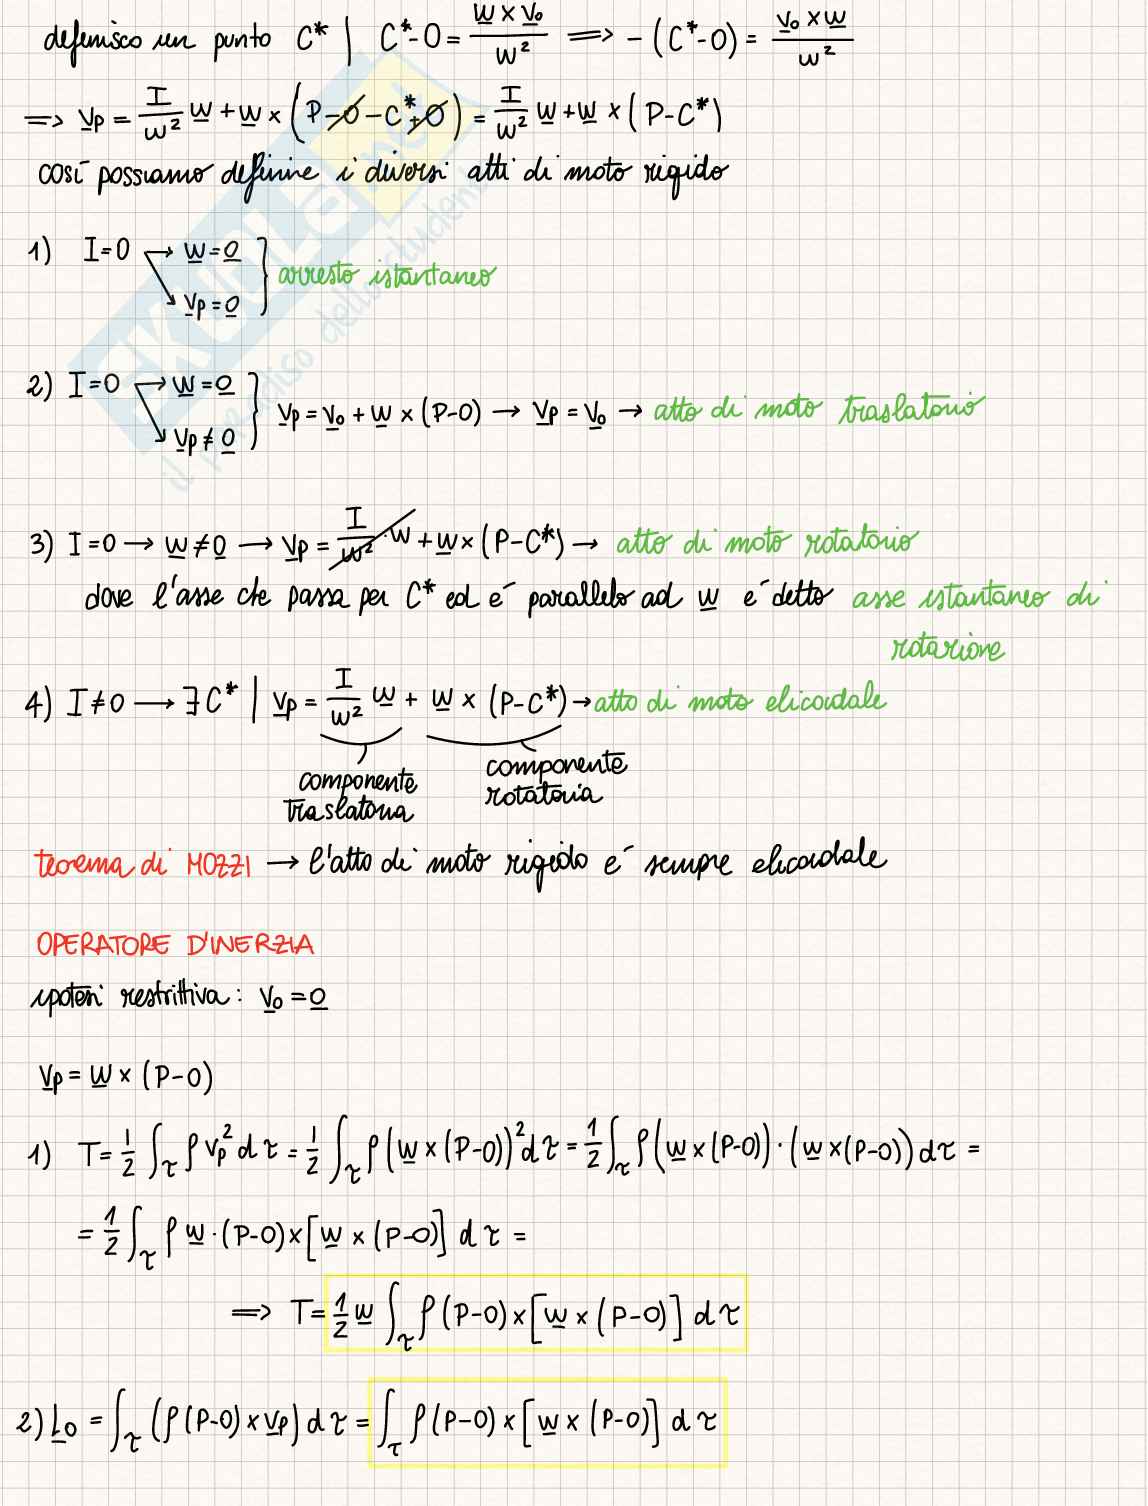 definisco un punto C* | C*-O = w × v₀ / w² ⟹ -(C*-O) = v₀ × w / w²
⟹ vp = I/w² w + w × (P-O-C*+O) = I/w² w + w × (P-C*)
così possiamo definire i diversi atti di moto rigido
1) I=0 → w=0
vp=0
arresto istantaneo
2) I=0 → w=0
vp≠0
vp = v₀ + w × (P-O) → vp = v₀ → atto di moto traslatorio
3) I=0 → w≠0 → vp = I/w² · w + w × (P-C*) → atto di moto rotatorio
dove l'asse che passa per C* ed e' parallelo ad w e' detto asse istantaneo di
rotazione
4) I≠0 → ∃ C* | vp = I/w² w + w × (P-C*) → atto di moto elicoidale
componente traslatoria
componente rotatoria
teorema di MOZZI → l'atto di moto rigido e' sempre elicoidale
OPERATORE D'INERZIA
ipotesi restrittiva: v₀ = 0
vp = w × (P-O)
1) T = 1/2 ∫τ ρ vp² dτ = 1/2 ∫τ ρ (w × (P-O))² dτ = 1/2 ∫τ ρ (w × (P-O)) · (w × (P-O)) dτ =
= 1/2 ∫τ ρ w · (P-O) × [w × (P-O)] dτ =
⟹ T = 1/2 w ∫τ ρ (P-O) × [w × (P-O)] dτ
2) L₀ = ∫τ (ρ (P-O) × vp) dτ = ∫τ ρ (P-O) × [w × (P-O)] dτ
SKUOLA.net
il paradiso dello studente